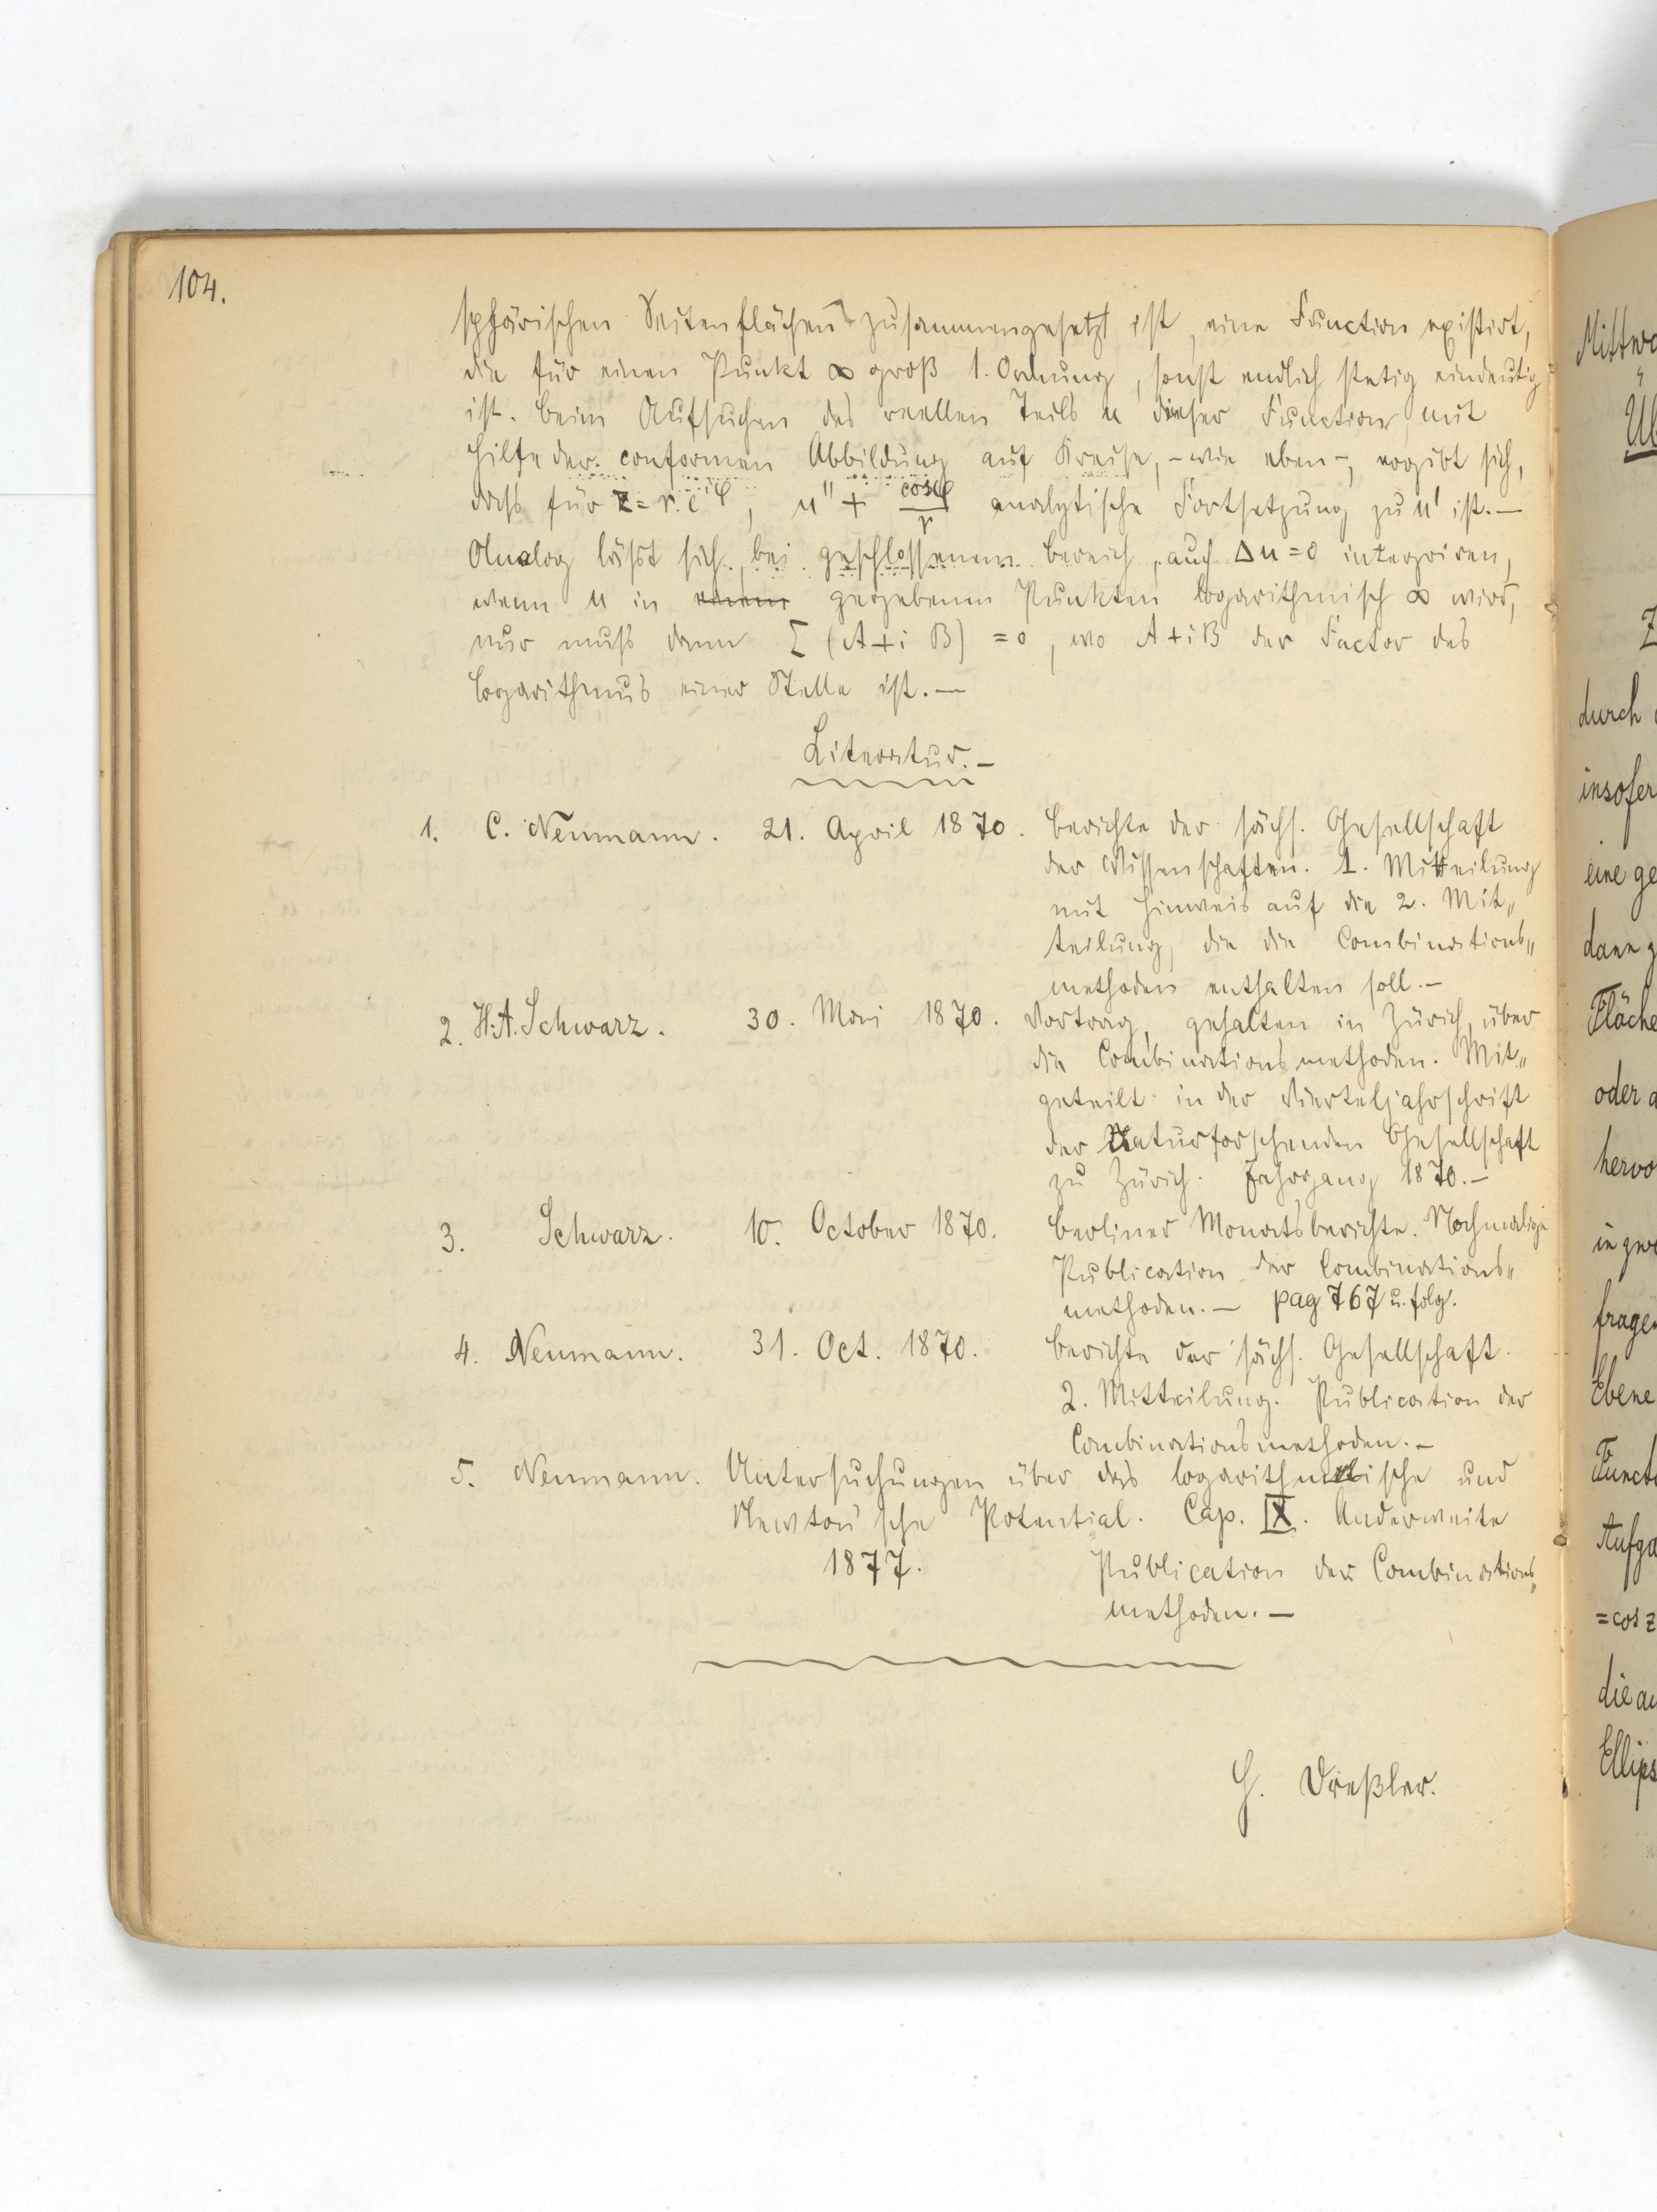 104.
sphärischen Seitenflächen zusammengesetzt ist, eine Function existirt,
die für einen Punkt ∞ groß 1. Ordnung, sonst endlich stetig eindeutig
ist. Beim Aufsuchen des reellen Teils u dieser Function mit
Hilfe der conformen Abbildung auf Kreise, – wie eben –, ergibt sich,
dass für z = r·e^{iφ}, u'' + cosφ/r analytische Fortsetzung zu u' ist. —
Analog lässt sich, bei geschlossenem Bereich, auch Δu = 0 integriren,
wenn u in einem gegebenen Punkten logarithmisch ∞ wird,
nur muss dann Σ (A + i B) = 0, wo A + iB der Factor des
Logarithmus einer Stelle ist. —
Literatur. –
1. C. Neumann. 21. April 1870. Berichte der sächs. Gesellschaft
der Wissenschaften. 1. Mitteilung
mit Hinweis auf die 2. Mit„
teilung, die die Combinations„
methoden enthalten soll. –
2. H. A. Schwarz. 30. Mai 1870. Vortrag, gehalten in Zürich, über
die Combinationsmethoden. Mit„
geteilt in der Vierteljahrschrift
der Naturforschenden Gesellschaft
zu Zürich. Jahrgang 1870. –
3. Schwarz. 10. October 1870. Berliner Monatsberichte. Nochmalige
Publication der Combinations„
methoden. — pag 767 u. folg.
4. Neumann. 31. Oct. 1870. Berichte der sächs. Gesellschaft.
2. Mitteilung. Publication der
Combinationsmethoden. –
5. Neumann. Untersuchungen über das logarithmische und
Newton'sche Potential. Cap. IX. Anderweite
1877. Publication der Combinations„
methoden. —
G. Dreßler.
Mittwo
Üb
Z
durch
insofer
eine ge
dann g
Fläche
oder a
hervo
in gew
fragen
Ebene
Functi
Aufga
= cos z
die au
Ellips